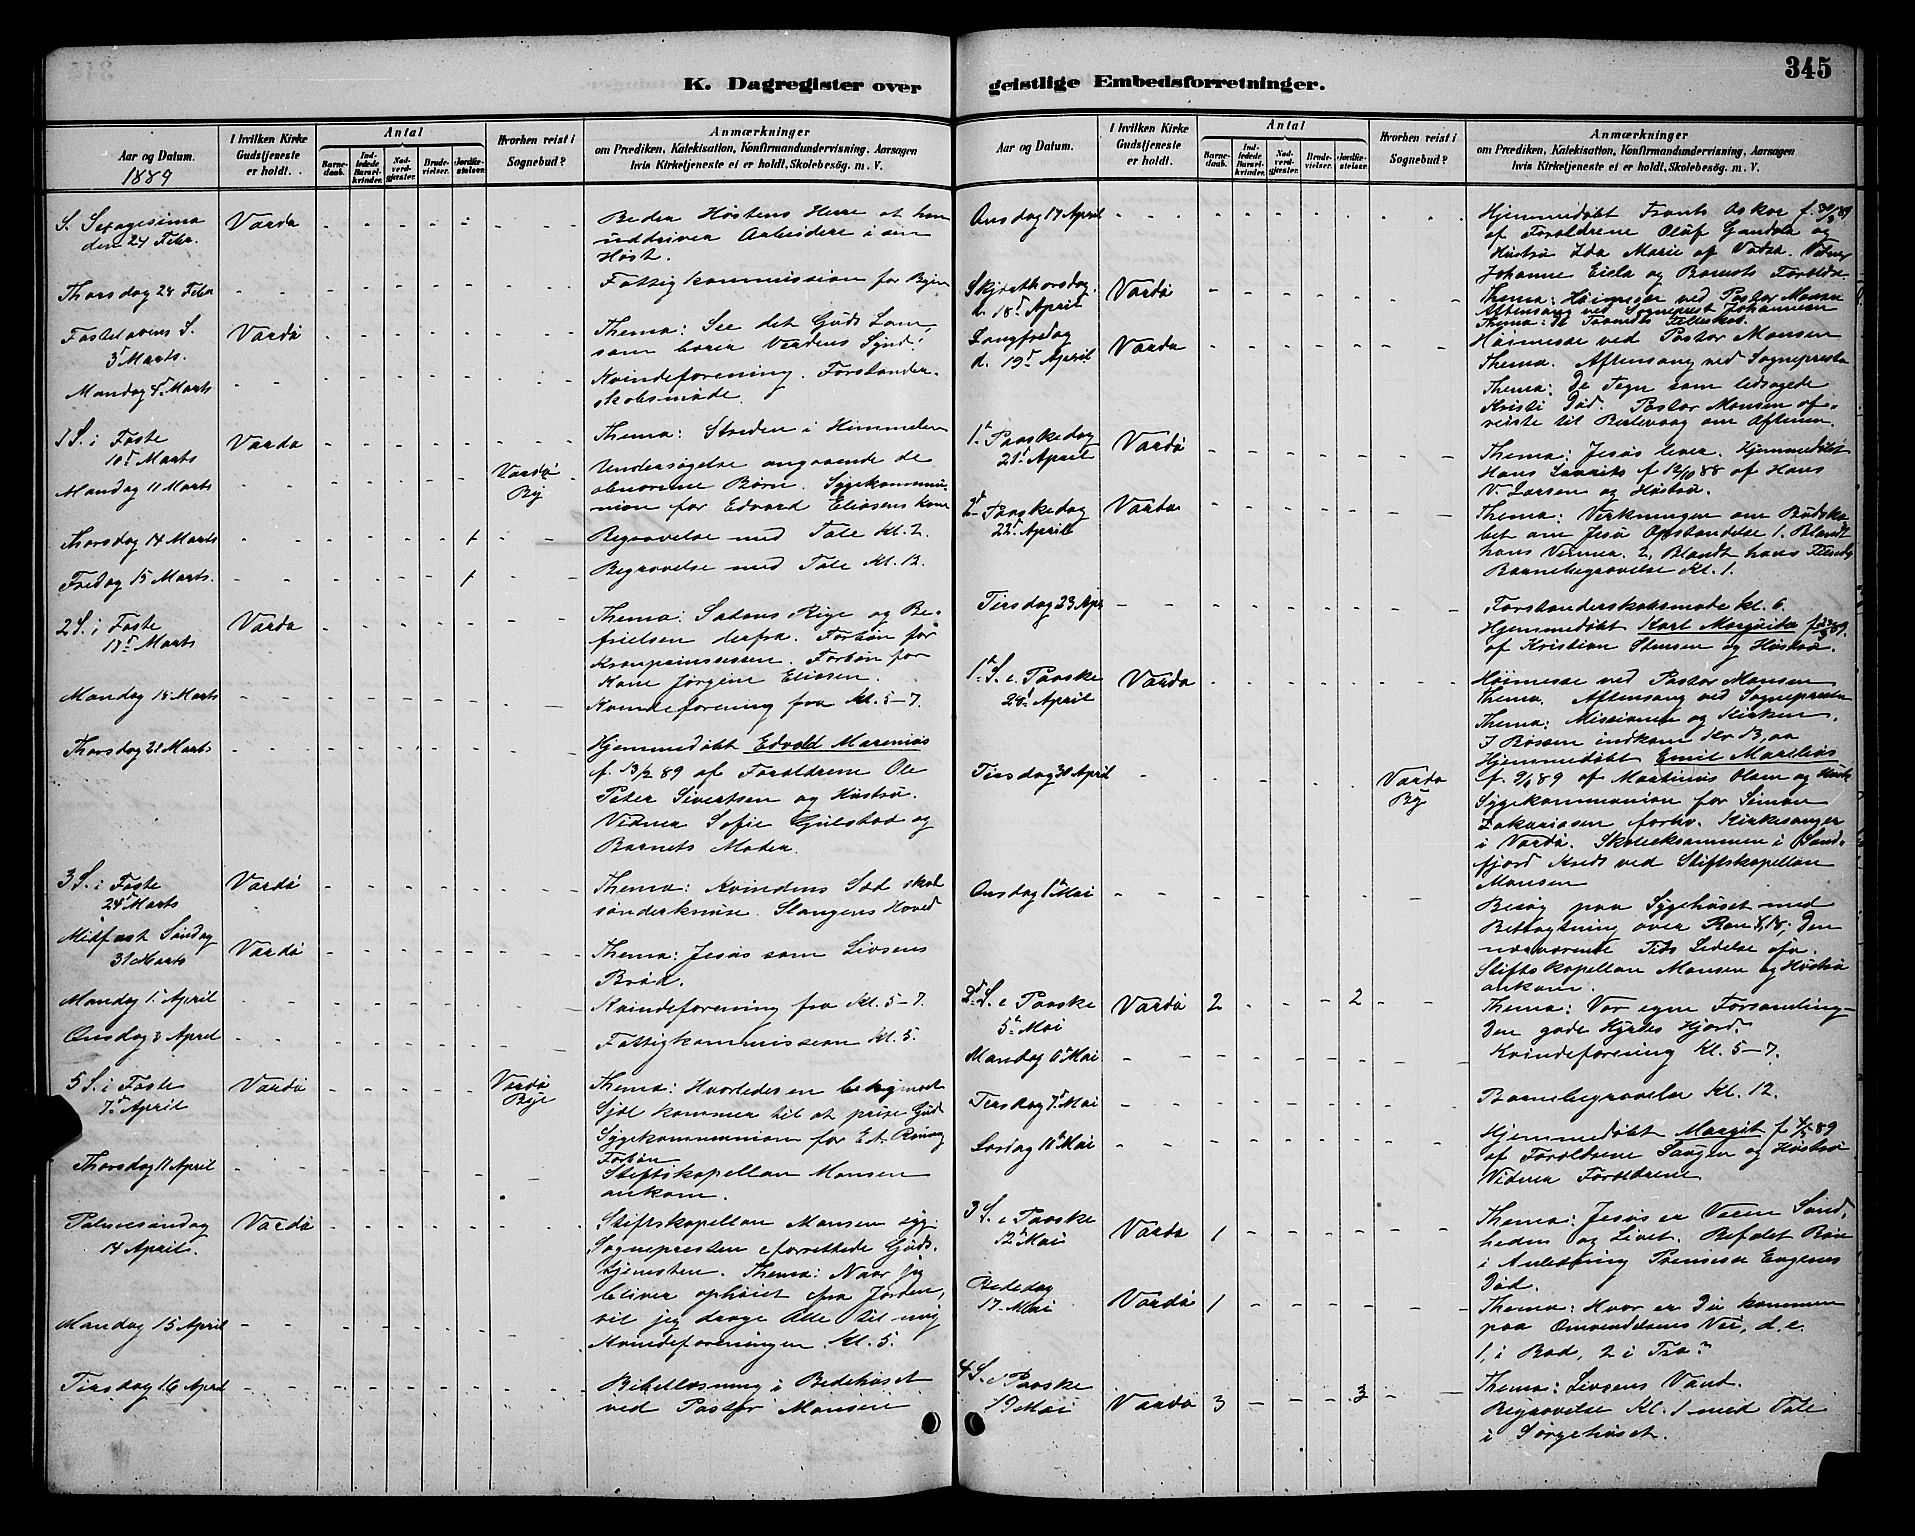 K. Dagregister over
Aar og Datum.
1889
I hvilken Kirke
Gudstjeneste
er holdt.
Antal
Barne-
daab.
Ind-
ledede
Barsel-
kvinder.
Nad-
verd-
gjæster.
Brude-
vielser.
Jordfæ-
stelser.
Hvorhen reist i
Sognebud?
Anmærkninger
om Prædiken, Katekisation, Konfirmandundervisning, Aarsagen
hvis Kirketjeneste ei er holdt, Skolebesøg. m. V.
S. Sexagesima
den 24 Febr.
Vardø
Beder Høstens Herre at han
uddriver Arbeidere i sin
Høst.
Thorsdag 28 Febr
Fattigkommission for Byen
Fastelavens S.
3d Marts.
Vardø
Thema: See det Guds Lam,
som bærer Verdens Synd!
Mandag 4d Marts
Kvindeforening. Forstander-
skabsmøde.
1 S. i Faste
10d Marts
Vardø
Thema: Striden i Himmelen
Mandag 11 Marts
Vardø
By
Undersøgelse angaaende de
abnorme Børn. Sygekommu-
nion for Edvard Eliasens Kone
Thorsdag 14 Marts
1
Begravelse med Tale Kl. 2.
Fredag 15 Marts.
1
Begravelse med Tale Kl. 12.
2 S. i Faste
17d Marts
Vardø
Thema: Satans Rige og Be-
frielsen derfra. Forbøn for
Kronprinsessen. Forbøn for
Kone Jørgine Eliasen.
Mandag 18 Marts
Kvindeforening fra Kl. 5-7.
Thorsdag 21 Marts
Hjemmedøbt Edvald Marenius
f. 13/2 89 af Forældrene Ole
Peter Sivertsen og Hustru.
Vidner Sofie Gulstad og
Barnets Moder.
3 S. i Faste
24d Marts
Vardø
Thema: Kvindens Sæd skal
sønderknuse Slangens Hoved
Midfast Søndag
31 Marts
Vardø
Thema: Jesus som Livsens
Brød.
Mandag 1d April
Kvindeforening fra Kl. 5-7.
Onsdag 3 April
Fattigkommission Kl. 5.
5 S. i Faste
7d April
Vardø
Vardø
By
Thema: Hvorledes en bekymret
Sjæl kommer til at prise Gud
Sygekommunion for
Forbøn
Thorsdag 11 April
Stiftskapellan Mansen
ankom.
Palmesøndag
14 April.
Vardø
Stiftskapellan Mansen og
Sognepresten forrettede Guds-
tjenesten. Thema: Naar jeg
bliver ophøiet fra Jorden,
vil jeg drage Alle til mig
Mandag 15 April
Kvindeforeningen Kl. 5.
Tirsdag 16 April
Bibellæsning i Bedehuset
ved Pastor Mansen
345
geistlige Embedsforretninger.
Aar og Datum.
I hvilken Kirke
Gudstjeneste
er holdt.
Antal
Barne-
daab.
Ind-
ledede
Barsel-
kvinder.
Nad-
verd-
gjæster.
Brude-
vielser.
Jordfæ-
stelser.
Hvorhen reist i
Sognebud?
Anmærkninger
om Prædiken, Katekisation, Konfirmandundervisning, Aarsagen
hvis Kirketjeneste ei er holdt, Skolebesøg. m. V.
Onsdag 17 April
Hjemmedøbt Frants Oskar f. 30/3 89
af Forældrene Oluf og
Hustru Ida Marie af Vadsø. Vidner
Johanne og Barnets Forældre
Skjærthorsdag
d. 18d April
Vardø
Thema: Høimesse ved Pastor Mansen
Aftensang ved Sogneprest Johannesen
Thema:
Langfredag
d. 19d April
Vardø
Høimesse ved Pastor Mansen
Thema. Aftensang ved Sognepresten
Thema: De Tegn som ledsagede
Kristi Død. Pastor Mansen af-
reiste til Berlevaag om Aftenen.
1d Paaskedag
21d April
Vardø
Thema: Jesus lever. Hjemmedøbt
Hans Laurits f. 12/10 88 af Hans
V. Larsen og Hustru.
2d Paaskedag
22d April
Vardø
Thema: Virkningen om Budska-
bet om Jesu Opstandelse 1. Blandt
hans Venner. 2, Blandt hans Fiender
Barnebegravelse Kl. 1.
Tirsdag 23 Apr
Forstanderskabsmøde kl. 6.
Hjemmedøbt Karl
af Kristian Stensen og Hustru.
1d S. e Paaske
28d April
Vardø
Høimesse ved Pastor Mansen
Thema. Aftensang ved Sognepresten
Thema: Missionen og Kirken.
I Bøssen indkom Kr 13,00
Tirsdag 30 April
Vardø
By
Hjemmedøbt Emil Marelius
f. 9/1 89 af Martinus Olsen og Hustr
Sygekommunion for Simon
Zakariasen forhv. Kirkesanger
i Vardø. Skoleeksammen i Sand-
fjord Kreds ved Stiftskapellan
Mansen
Onsdag 1d Mai
Besøg paa Sygehuset med
Betragtning over Rom 8,18; Den
nærværende Tids Lidelse
Stiftskapellan Mansen og Hustru
ankom.
2d S. e Paaske
5d Mai
Vardø
2
2
Thema: Vor egen Forsamling-
Den gode Hyrdes Hjord.
Mandag 6d Mai
Kvindeforening Kl. 5-7.
Tirsdag 7d Mai
Barnebegravelse Kl. 12.
Lørdag 11d Mai
Hjemmedøbt Margit
af Forældrene og Hustru
Vidner Forældrene
3 S. e Paaske
12d Mai
Vardø
1
Thema: Jesus er Veien Sand-
heden og Livet. Befalet Bøn
i Anledning Prinsesse Eugenes
Død.
Bededag
17 Mai
Vardø
1
Thema: Hvor er Du kommen
paa Omvendelsens Vei, d. e.
1, i Bod, 2 i Tro?
4 S. e Paaske
19 Mai
Vardø
3
3
Thema: Livsens Vand.
Begravelse Kl. 1 med Tale
i Sørgehuset.